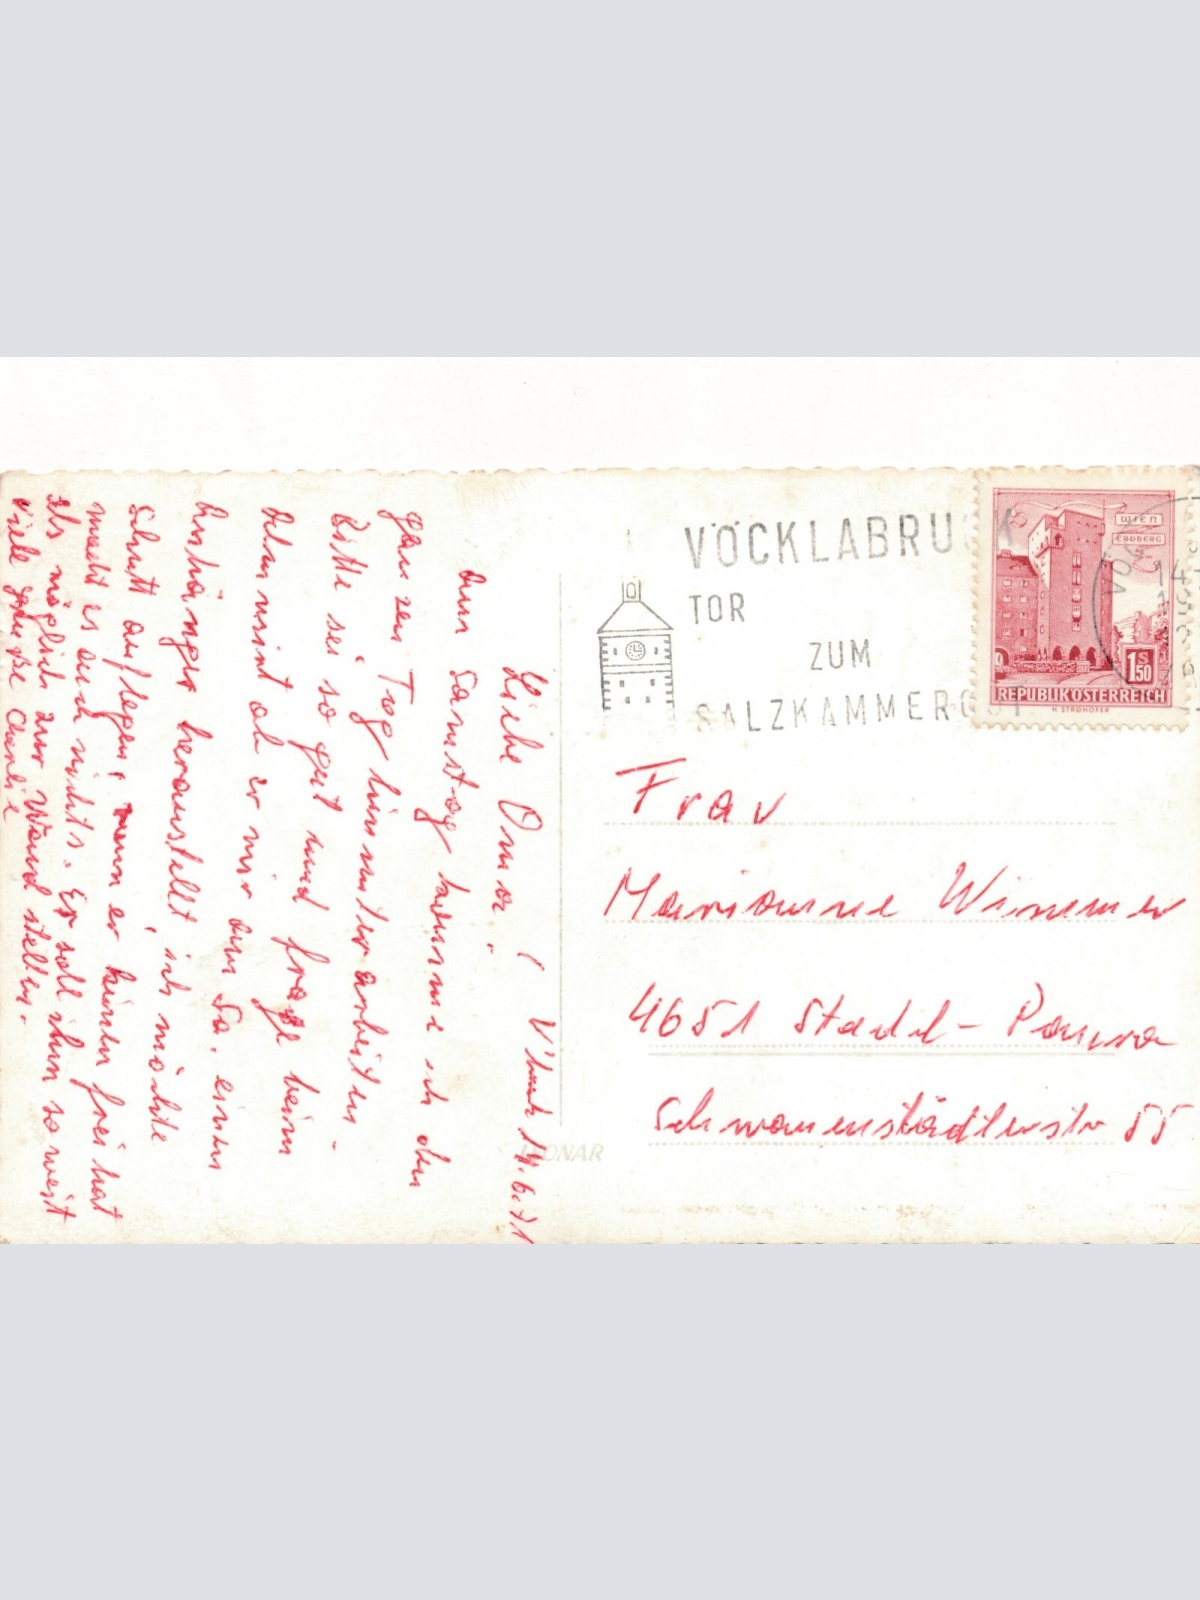 V'bruck 14.6.71
Liebe Oma!
Am Samstag komme ich den
ganzen Tag hinunter arbeiten.
Bitte sei so gut und frage beim
ob er mir am Sa. einen
Anhänger herausstellt, ich möchte
Schutt auflegen, wenn er keinen frei hat
macht es auch nichts. Er soll ihn so weit
als möglich zur Wand stellen.
Viele Grüße
VÖCKLABRUCK
TOR
ZUM
SALZKAMMERGUT
WIEN
ERDBERG
1S50
REPUBLIK ÖSTERREICH
H. STROHOFER
Frau
Marianne Wimmer
4651 Stadl-Paura
Schwanenstädterstr 55